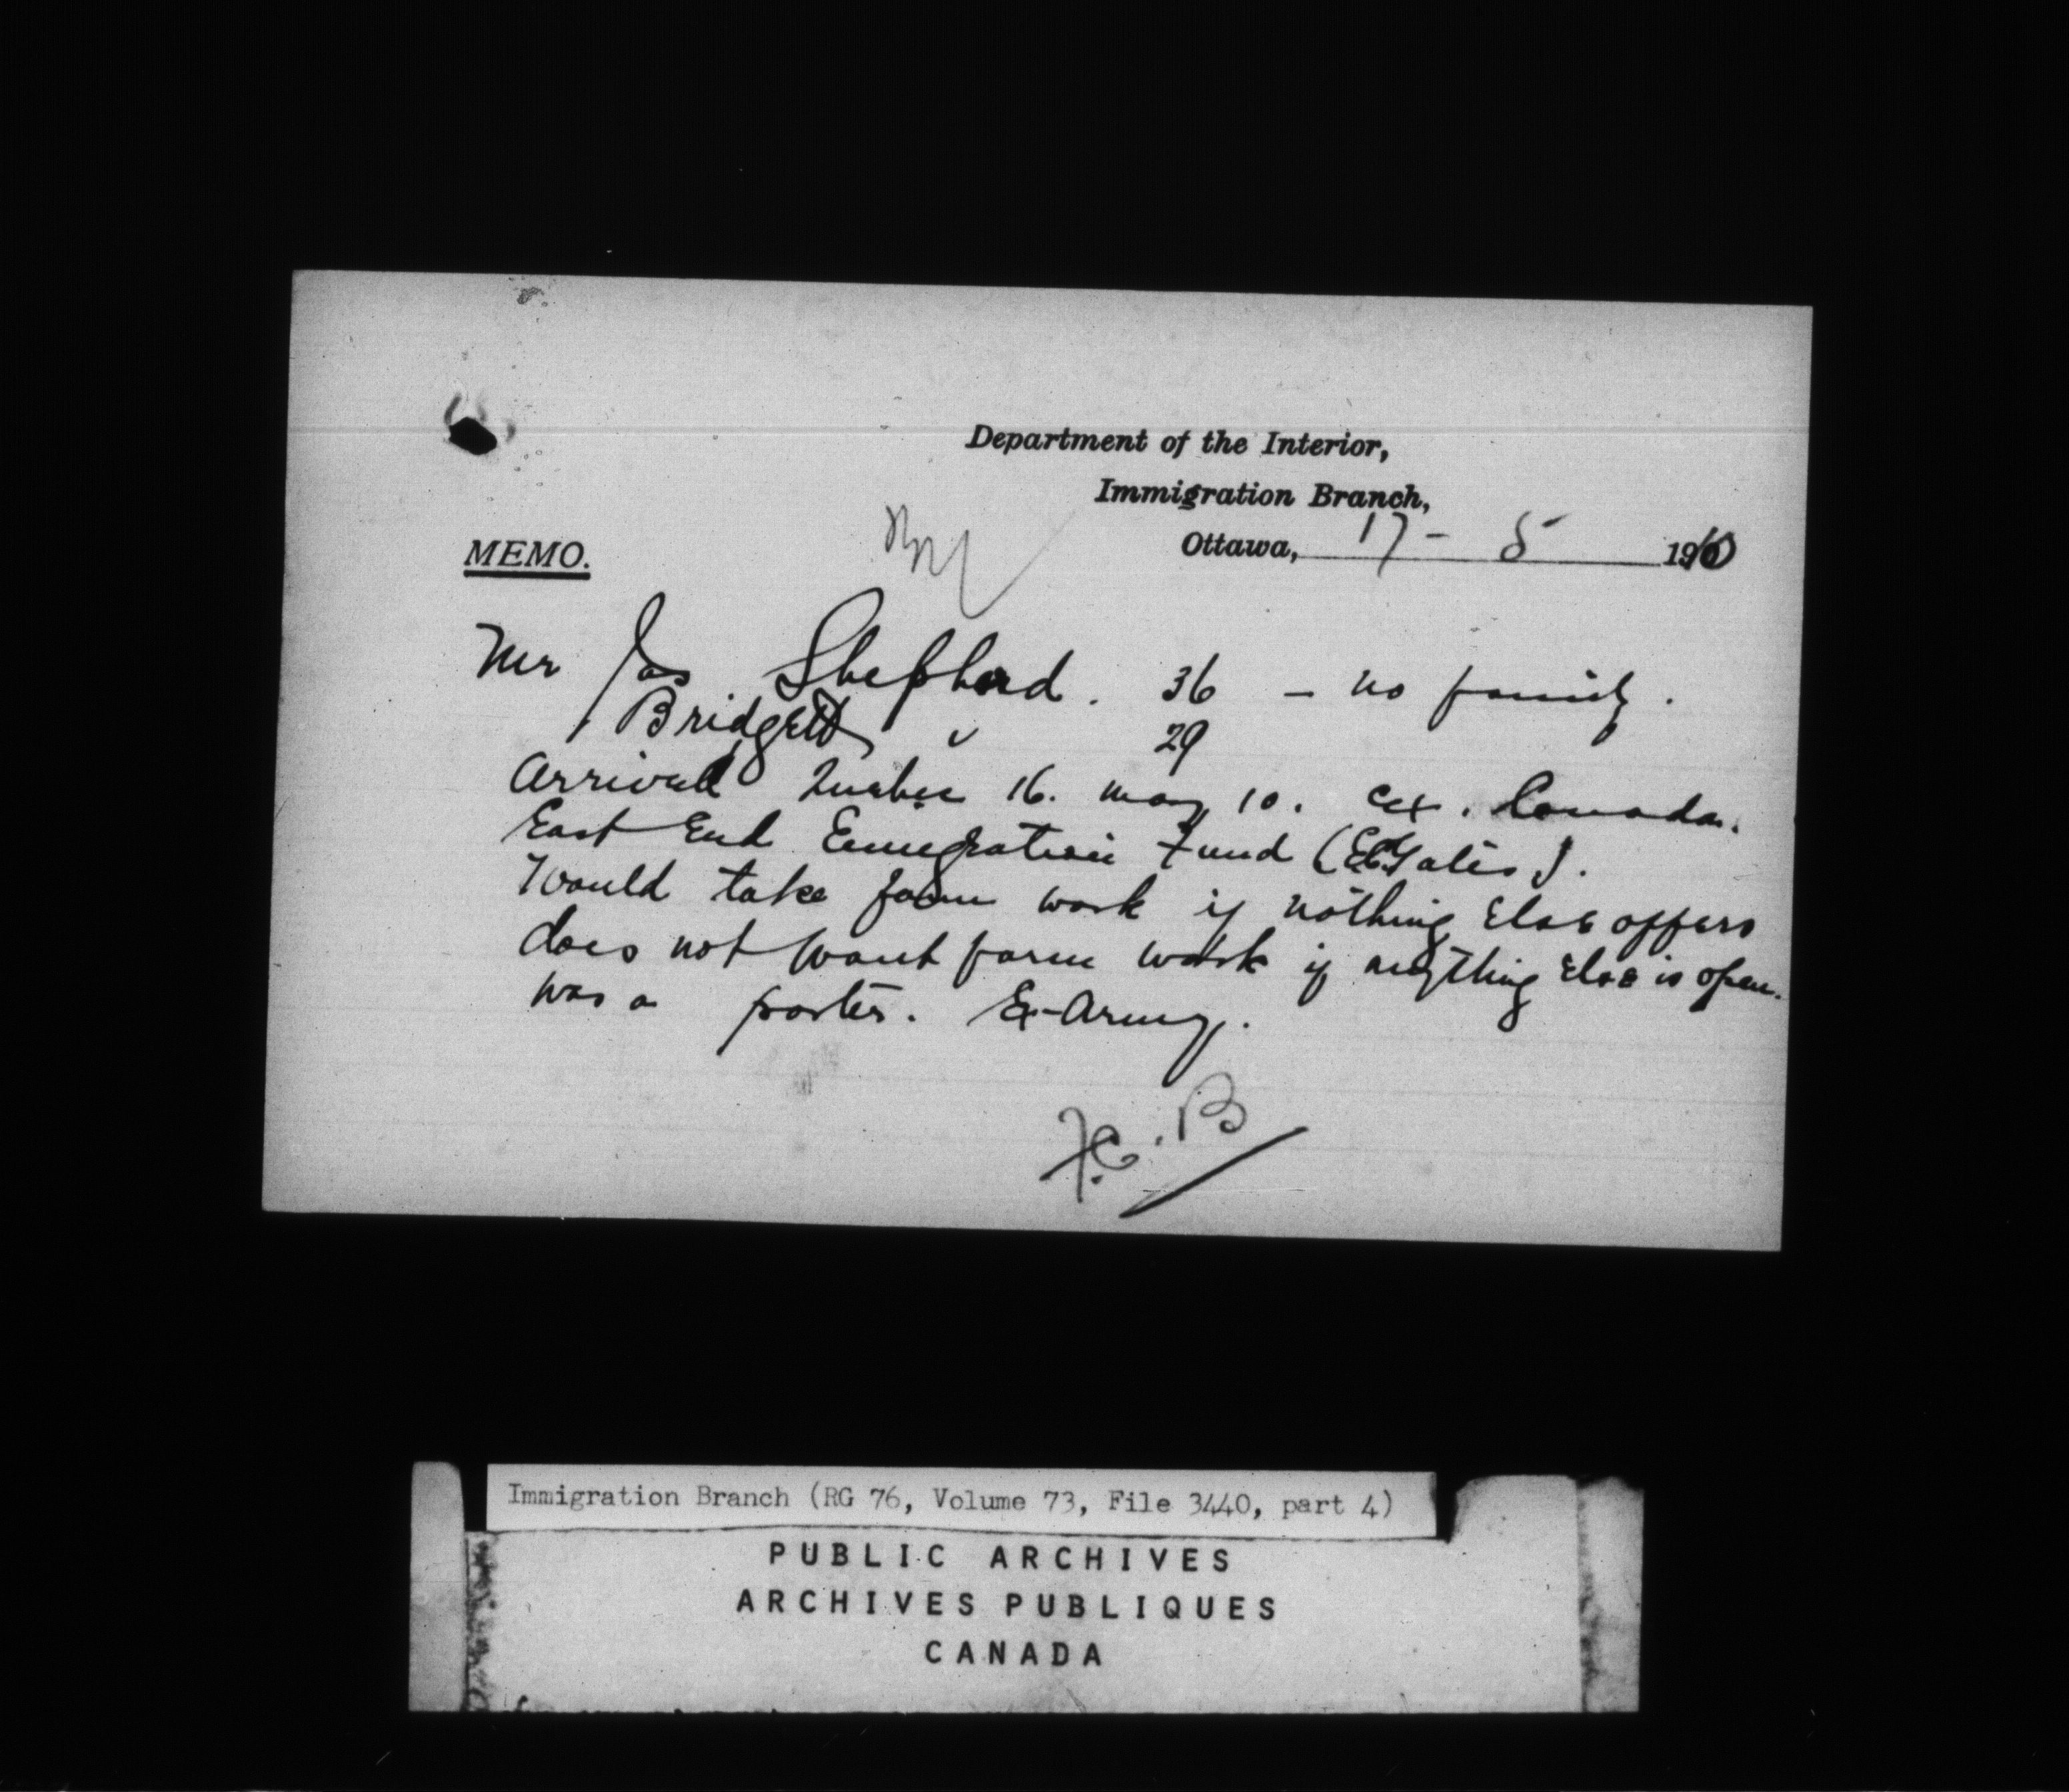 Department of the Interior,
Immigration Branch,
Ottawa, 17 - 5 1910
MEMO.
Mr Jas Shepherd. 36 - no family.
" Bridgett " 29
Arrived Quebec 16. May 10. ex. Canada.
East End Emigration Fund (
Would take farm work if nothing else offers
does not want farm work if anything else is open.
was a porter. Ex-Army.
F.C.B
Immigration Branch (RG 76, Volume 73, File 3440, part 4)
PUBLIC ARCHIVES
ARCHIVES PUBLIQUES
CANADA